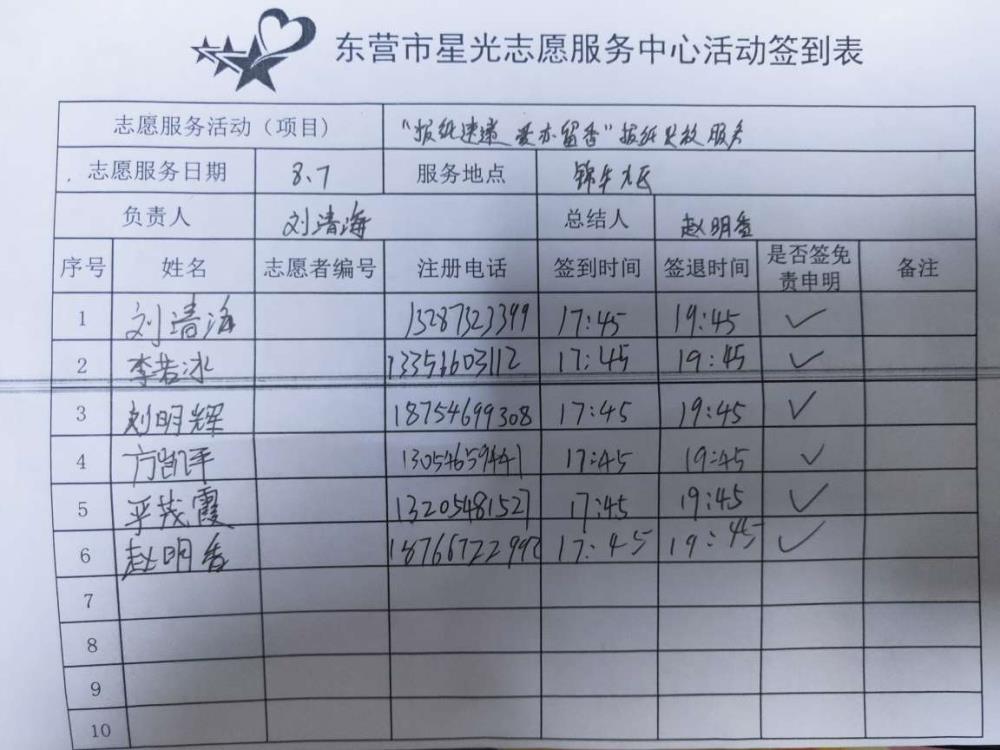 东营市星光志愿服务中心活动签到表
志愿服务活动（项目） “报纸速递 爱亦留香”报纸发放服务
志愿服务日期 8.7 服务地点 锦华大区
负责人 刘清海 总结人 赵明香
序号 姓名 志愿者编号 注册电话 签到时间 签退时间 是否签免责申明 备注
1 刘清海 15287523399 17:45 19:45 ✓
2 李若冰 13356603112 17:45 19:45 ✓
3 刘明辉 18754699308 17:45 19:45 ✓
4 方凯平 13054659441 17:45 19:45 ✓
5 平茂霞 13205481527 17:45 19:45 ✓
6 赵明香 17:45 19:45 ✓
7
8
9
10